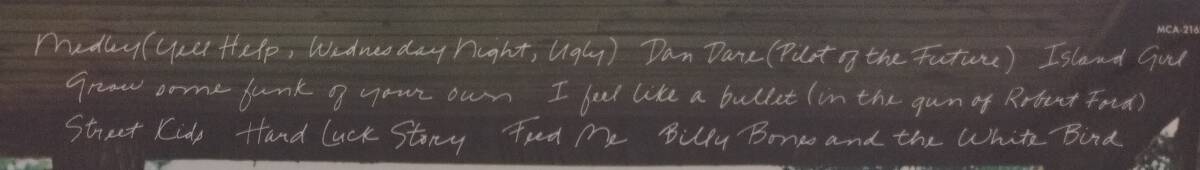 MCA-216
Medley (Yell Help, Wednesday Night, Ugly) Dan Dare (Pilot of the Future) Island Girl
Grow some funk of your own I feel like a bullet (in the gun of Robert Ford)
Street Kids Hard Luck Story Feed Me Billy Bones and the White Bird